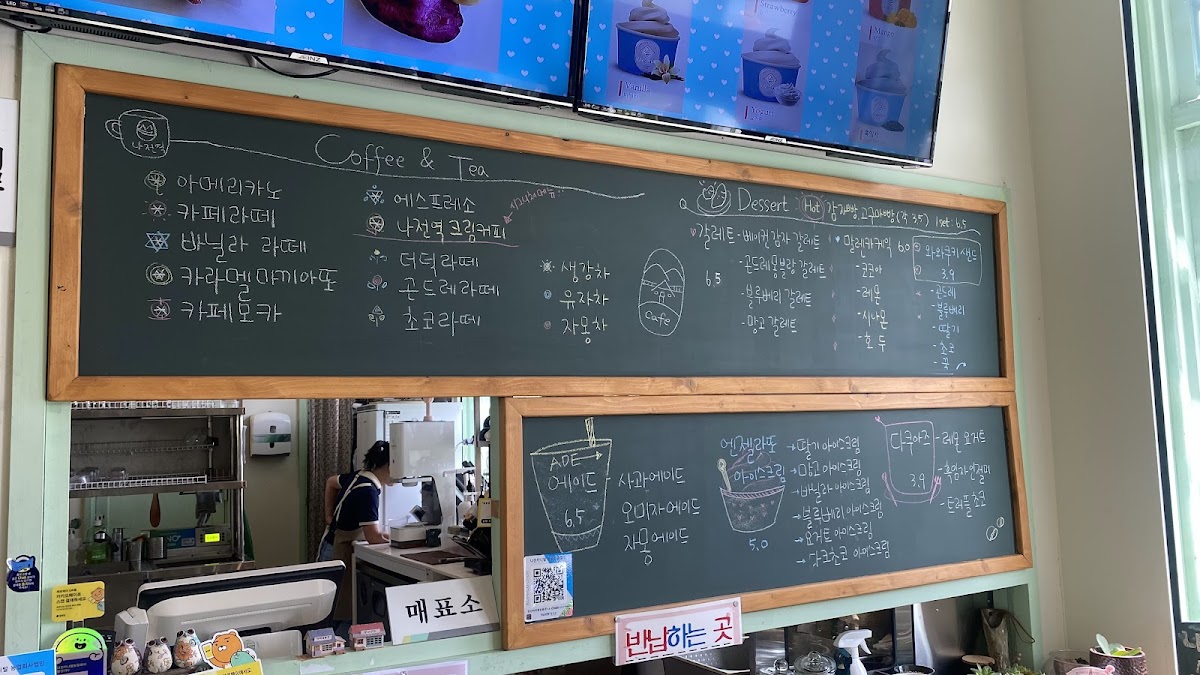 Strawberry
Mango
Vanilla
Yogurt
나전역
Coffee & Tea
아메리카노
카페라떼
바닐라 라떼
카라멜마끼아또
카페모카
에스프레소
시그니처메뉴
나전역 크림커피
더덕라떼
곤드레라떼
초코라떼
생강차
유자차
자몽차
Cafe
Dessert
Hot 감자빵, 고구마빵 (각 3.5) 1set : 6.5
갈레트 - 베이컨 감자 갈레트
- 곤드레몽블랑 갈레트
6.5
- 블루베리 갈레트
- 망고 갈레트
말렌카케익 6.0
- 코코아
- 레몬
- 시나몬
- 호두
와와쿠키샌드
3.9
- 곤드레
- 블루베리
- 딸기
- 초코
- 쑥
ADE
에이드
6.5
- 사과에이드
오미자에이드
자몽에이드
엔젤라또
아이스크림
5.0
→ 딸기 아이스크림
→ 망고 아이스크림
→ 바닐라 아이스크림
→ 블루베리 아이스크림
→ 요거트 아이스크림
→ 다크초코 아이스크림
다쿠아즈
3.9
- 레몬 요거트
- 흑임자인절미
- 트러플초코
매표소
반납하는 곳